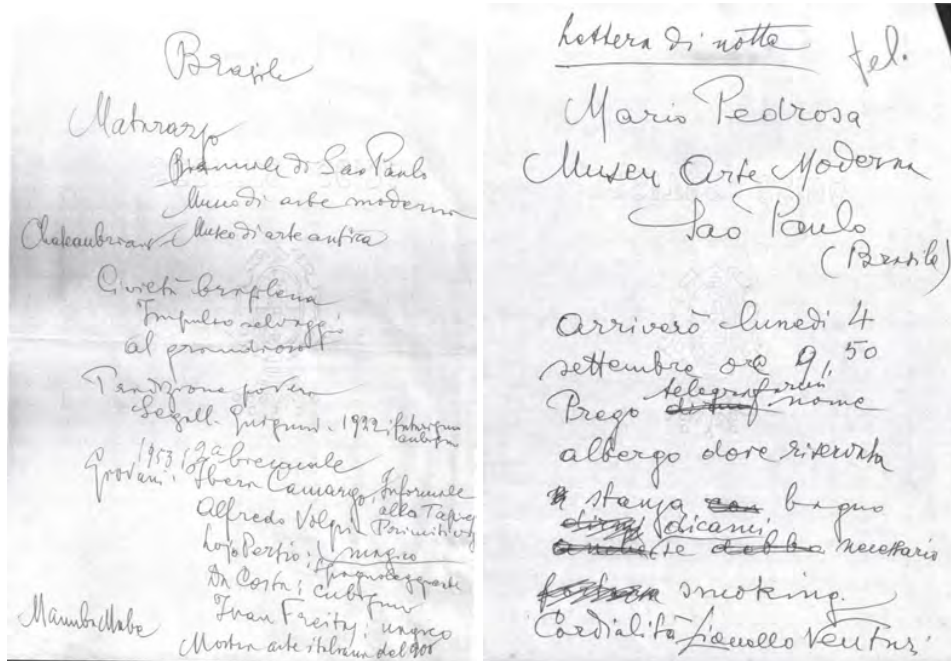 Brasile
Matarazzo
Biennale di Sao Paulo
Museo di arte moderna
Chateaubriant Museo di arte antica
Civiltà brasiliana
Impulso selvaggio
al grandioso
Tradizione povera
Segall - 1922:
1953: 2a biennale
Giovani: Ibera Camargo, Informale
alla Tapies
Alfredo Volpi: Primitivo
magico
Da Costa: Cubismo
Ivan Freitas: magico
Manabu Mabe
Mostra arte italiana del 900
Lettera di notte
tel.
Mario Pedrosa
Museu Arte Moderna
Sao Paulo
(Brasile)
arriverò lunedì 4
settembre ore 9,50
Prego telegrafarmi nome
albergo dove riservata
stanza con bagno
dicami
se necessario
smoking.
Cordialità Lionello Venturi